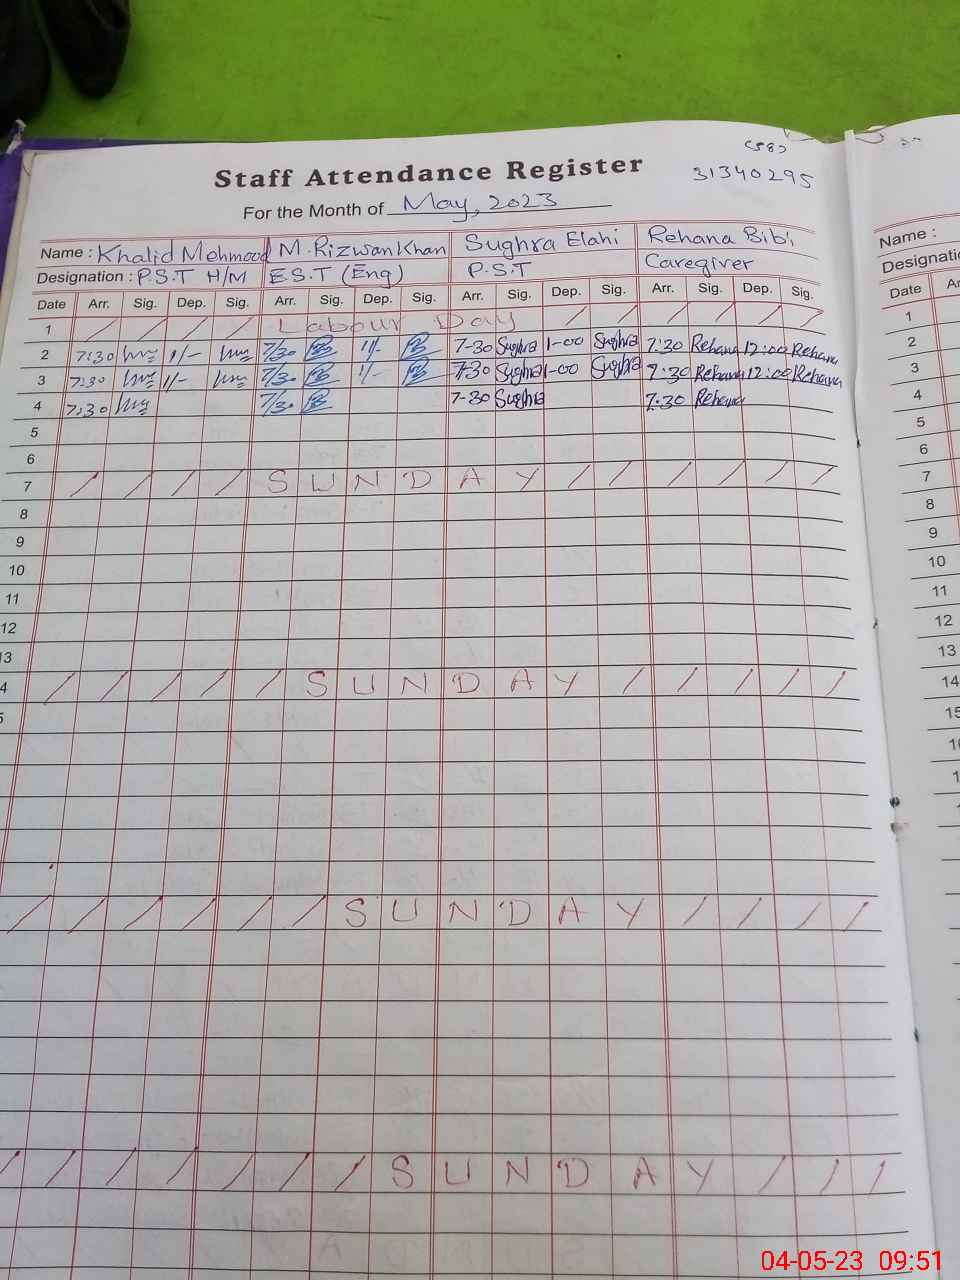 (58)
31340295
Staff Attendance Register
For the Month of May, 2023
Name : Khalid Mehmood M. Rizwan Khan Sughra Elahi Rehana Bibi
Designation : P.S.T H/M E.S.T (Eng) P.S.T Caregiver
Date Arr. Sig. Dep. Sig. Arr. Sig. Dep. Sig. Arr. Sig. Dep. Sig. Arr. Sig. Dep. Sig.
1 / / / / Labour Day / / / / / /
2 7:30 1/- 7/30 1/- 7-30 Sughra 1-00 Sughra 7:30 Rehana 12:00 Rehana
3 7:30 1/- 7/30 1/- 7-30 Sughra 1-00 Sughra 7:30 Rehana 12:00 Rehana
4 7:30 7/30 7-30 Sughra 7:30 Rehana
5
6
7 / / / / SUNDAY / / / / / /
8
9
10
11
12
13
4 / / / / / SUNDAY / / / / /
5
/ / / / / / SUNDAY / / / /
/ / / / / / / SUNDAY / / /
Name :
Designatio
Date Ar
1
2
3
4
5
6
7
8
9
10
11
12
13
14
15
1
1
04-05-23 09:51